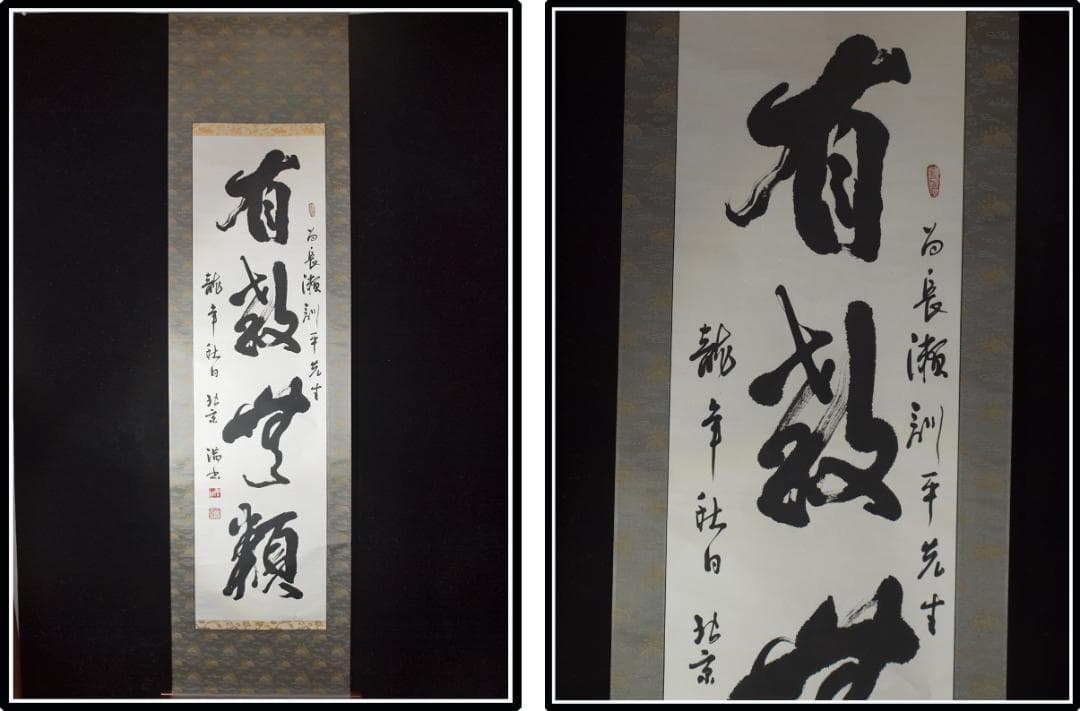 为長瀨訓平先生
有教無類
龍年秋日 北京
为長瀨訓平先生
有教
龍年秋日 北京